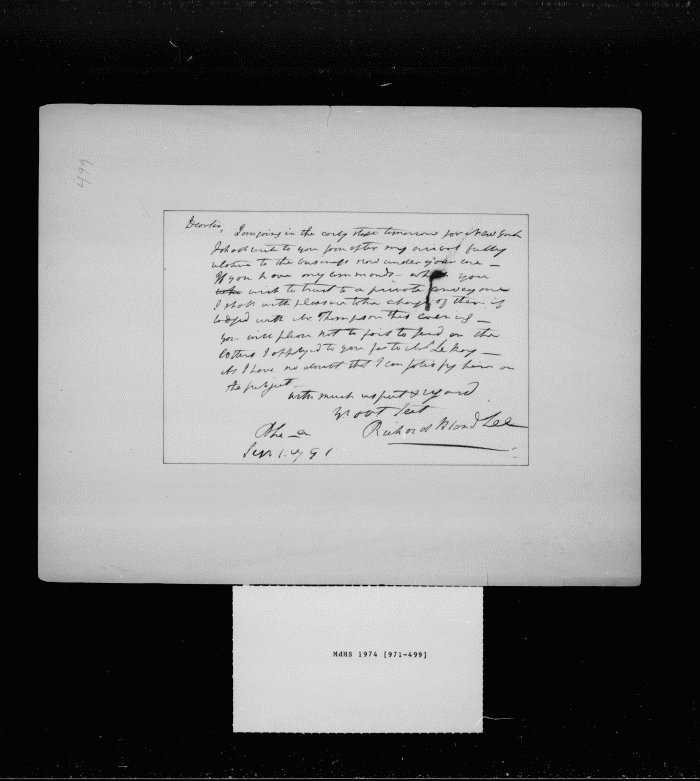 499
Dear Sir,
I am going in the early stage tomorrow for New York
I shall write to you soon after my arrival fully
relative to the business now under your care —
If you have any commands — which you
wish to trust to a private conveyance
I shall with pleasure take charge of them if
lodged with Mr. Thompson this evening —
You will please not to fail to send on the
letters I applyed to you for to Mr. Le Roy —
As I have no doubt that I can satisfy him on
the subject —
with much respect & regard
Yr obt Sert
Richard Bland Lee
Pha
Sepr 1. 1791
MdHS 1974 [971-499]